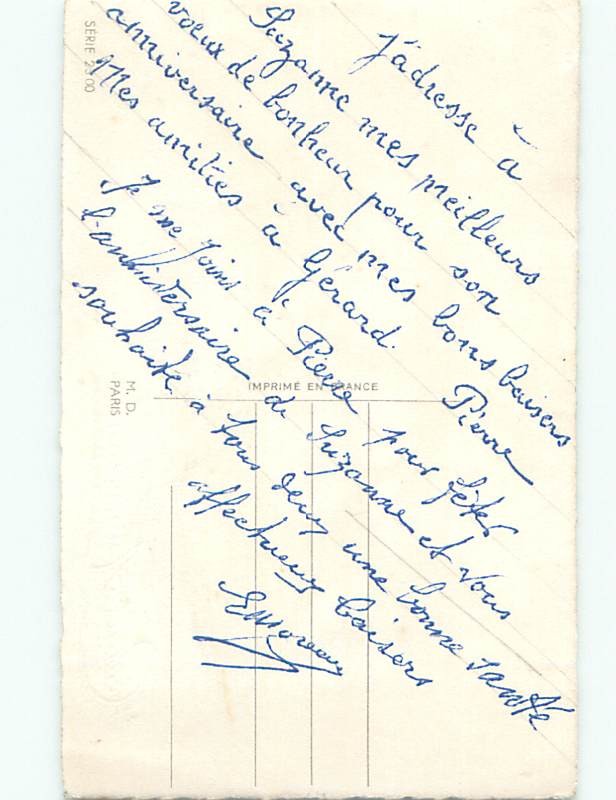 J'adresse à
Suzanne mes meilleurs
voeux de bonheur pour son
anniversaire avec mes bons baisers
Mes amitiés à Gérard. Pierre
Je me joins à Pierre pour fêter
l'anniversaire de Suzanne et vous
souhaite à tous deux une bonne santé
affectueux baisers
SÉRIE
IMPRIMÉ EN FRANCE
M. D.
PARIS